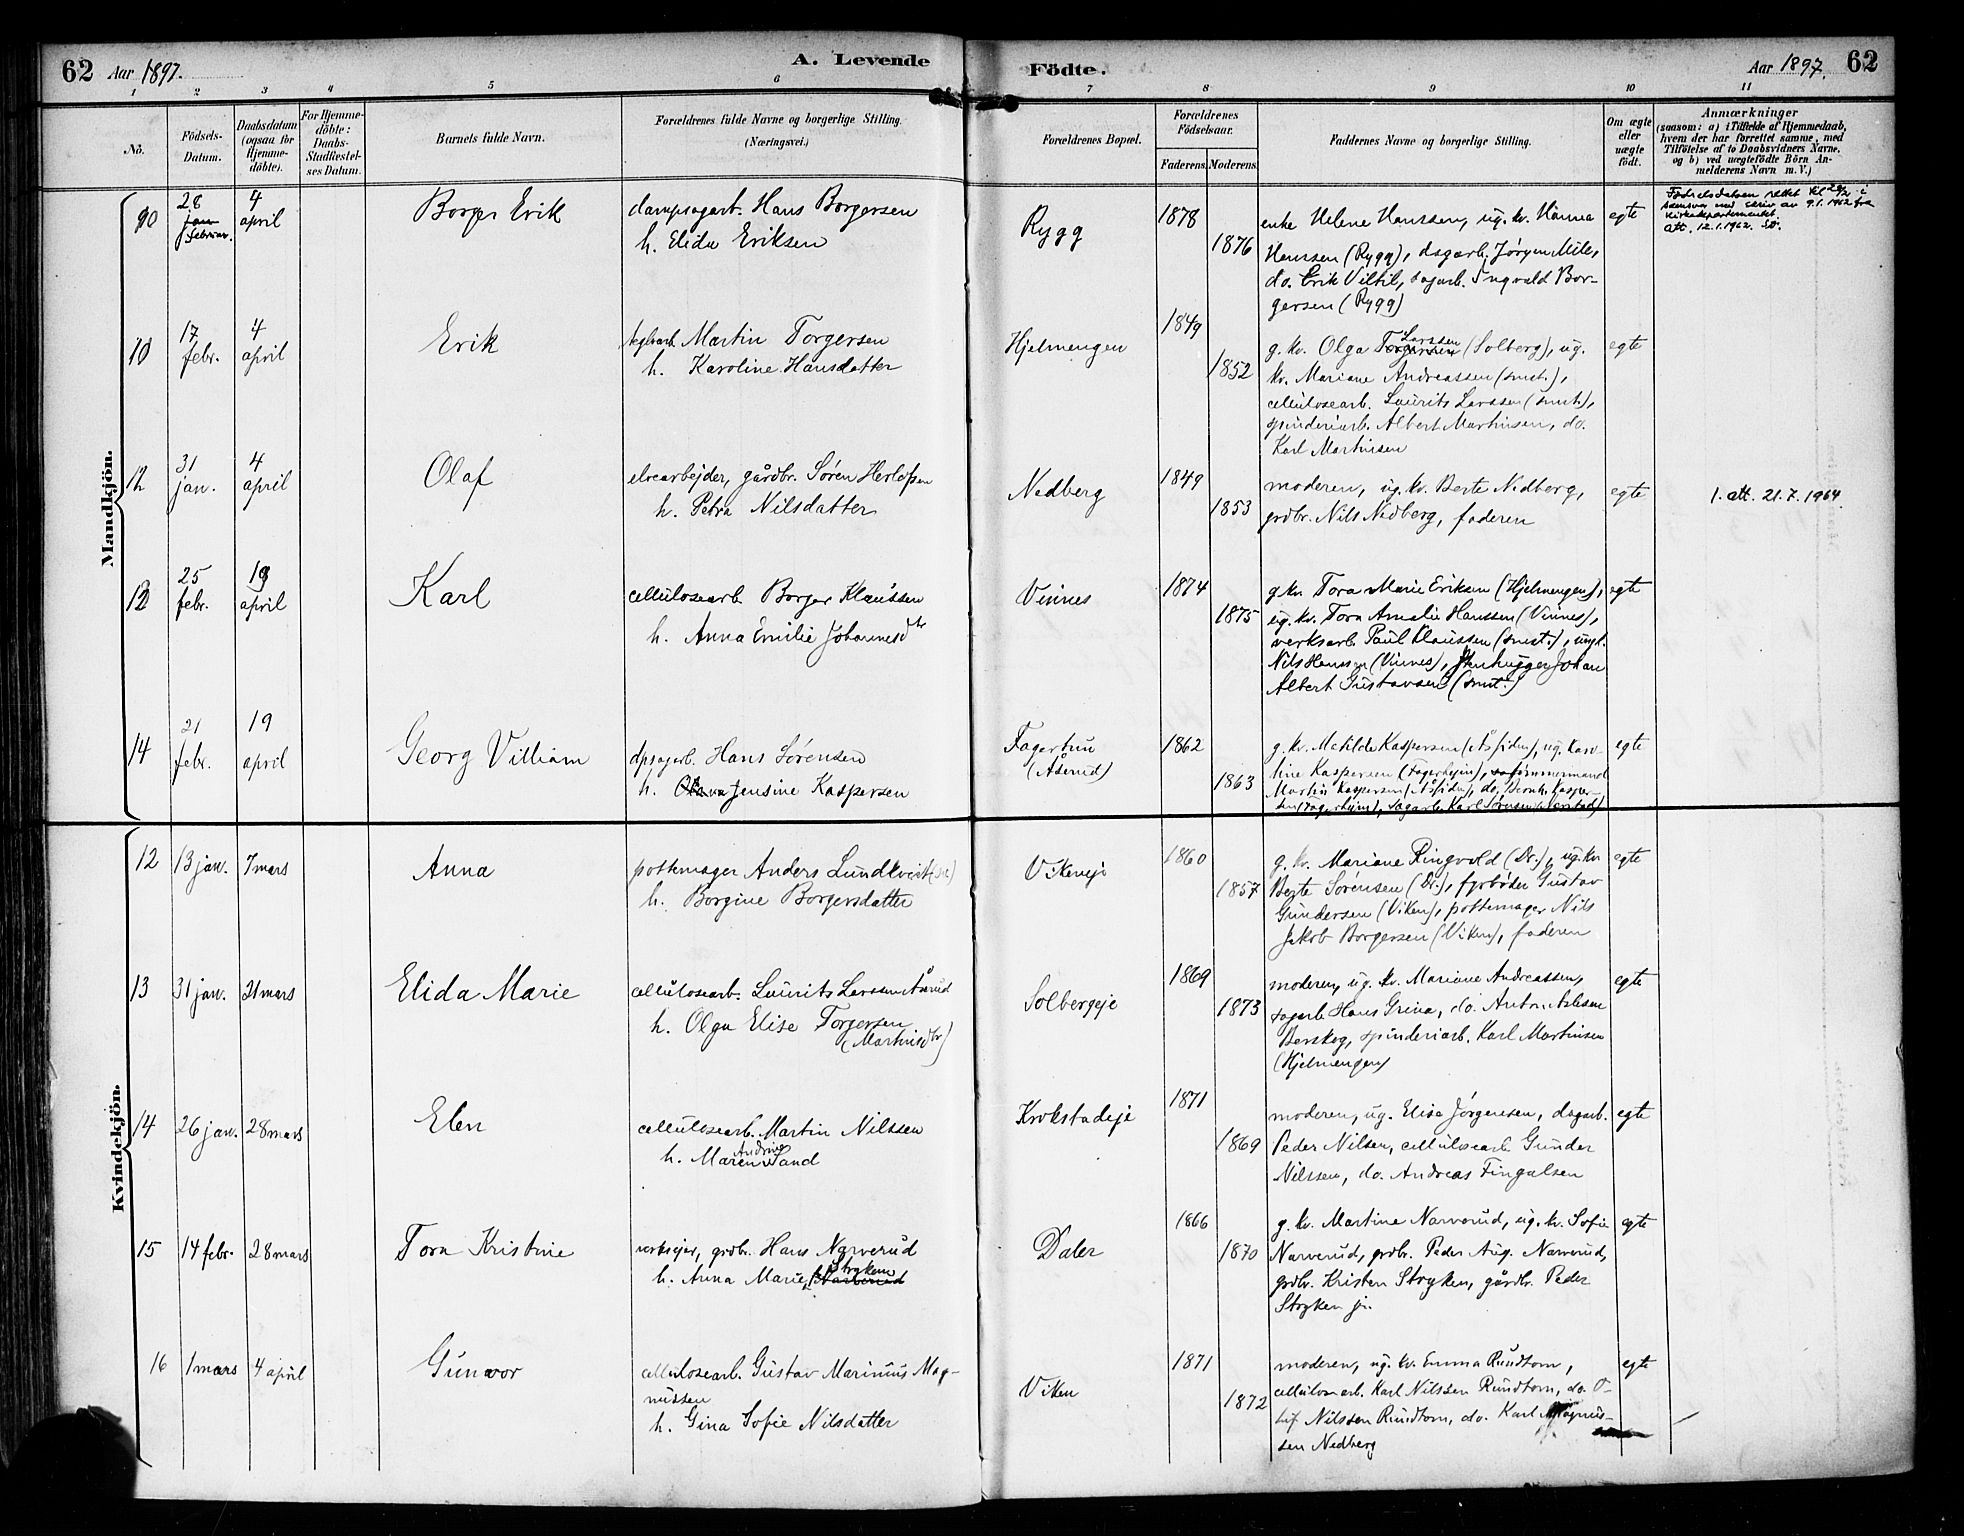 62 Aar 1897. A. Levende Födte. Aar 1897. 62
1 2 3 4 5 6 7 8 9 10 11
No.
Födsels-Datum.
Daabsdatum (ogsaa for Hjemme-döbte).
For Hjemme-döbte: Daabs-Stadfæstel-ses Datum.
Barnets fulde Navn.
Forældrenes fulde Navne og borgerlige Stilling.
(Næringsvei.)
Forældrenes Bopæl.
Forældrenes Födselsaar.
Faderens. Moderens.
Faddernes Navne og borgerlige Stilling.
Om ægte eller uægte födt.
Anmærkninger
(saasom: a) i Tilfælde af Hjemmedaab,
hvem der har forrettet samme, med
Tilföielse af to Daabsvidners Navne,
og b) ved uægtefödte Börn An-
melderens Navn m. V.)
Mandkjön.
10 28 jan februar. 4 april Borger Erik
dampsagarb. Hans Borgersen
h. Elida Eriksen
Rygg 1878 1876
enke Helene Hanssen, ug. kv. Hanna
Hanssen (Rygg), dagarb. Jørgen Mile,
do. Erik Viltil, dagarb. Ingvald Bor-
gersen (Rygg)
egte
Fødselsdatoen rettet til 28/2 i
samsvar med skriv av 9.1.1962 fra
Kirkedepartementet.
att. 12.1.1962.
10 17 febr. 4 april Erik
teglarb. Martin Torgersen
h. Karoline Hansdatter
Hjelmengen 1849 1852
g. kv. Olga Torgersen Larssen (Solberg), ug.
kv. Mariane Andreassen (smst.),
cellulosearb. Laurits Larssen (smst.),
spinderiarb. Albert Martinsen, do.
Karl Martinsen
egte
12 31 jan. 4 april Olaf
elvearbejder, gårdbr. Søren Herlofsen
h. Petra Nilsdatter
Nedberg 1849 1853
moderen, ug. kv. Berte Nedberg,
grdbr. Nils Nedberg, faderen
egte
1. att. 21.7.1964.
25 febr. 19 april Karl
cellulosearb. Borger Klaussen
h. Anna Emilie Johannesdtr
Vinnes 1874 1875
g. kv. Tora Marie Eriksen (Hjelmengen),
ug. kv. Tora Amalie Hanssen (Vinnes),
verksarb. Paul Klaussen (smst.), ungk.
Nils Hanssen (Vinnes), stenhugger Johan
Albert Gustavsen (smst.)
egte
14 21 febr. 19 april Georg Villiam
dpsagarb. Hans Sørensen
h. Jensine Kaspersen
Fagertun
(Åserud)
1862 1863
g. kv. Matilde Kaspersen (Åssiden), ug. Karo-
line Kaspersen (Fagerheim), tømmermand
Martin Kaspersen (Åssiden), do. Bernh. Kasper-
sen (Fagerheim), sagarb. Karl Sørensen
egte
Kvindekjön.
12 13 jan. 7 mars Anna
pottemager Anders Lundkvist
h. Borgine Borgersdatter
Vikeneje 1860 1857
g. kv. Mariane Ringvold (Dr.), ug. kv.
Berte Sørensen (Dr.), fyrbøder Gustav
Gundersen (Viken), pottemager Nils
Jakob Borgersen (Viken), faderen
egte
13 31 jan. 21 mars Elida Marie
cellulosearb. Laurits Larssen Åserud
h. Olga Elise Torgersen
(Martinsdtr)
Solbergeje 1869 1873
moderen, ug. kv. Mariane Andreassen,
sagarb. Hans Grina, do. Anton
Berskog, spinderiarb. Karl Martinsen
(Hjelmengen)
egte
14 26 jan. 28 mars Elen
cellulosearb. Martin Nilssen
h. Maren Andrine Sand
Krokstadeje 1871 1869
moderen, ug. Elise Jørgensen, dagarb.
Peder Nilsen, cellulosearb. Gunder
Nilssen, do. Andreas Fingalsen
egte
15 14 febr. 28 mars Tora Kristine
verksejer, grdbr. Hans Narverud
h. Anna Marie Narverud Stryken
Daler 1866 1870
g. kv. Martine Narverud, ug. kv. Sofie
Narverud, grdbr. Peder Aug. Narverud,
grdbr. Kristen Stryken, gårdbr. Peder
Stryken jr.
egte
16 1 mars 4 april Gunvor
cellulosearb. Gustav Marinius Mag-
nussen
h. Gina Sofie Nilsdatter
Viken 1871 1872
moderen, ug. kv. Emma Rundtom,
cellulosearb. Karl Nilssen Rundtom, do. O-
luf Nilssen Rundtom, do. Karl Magnus-
sen Nedberg
egte